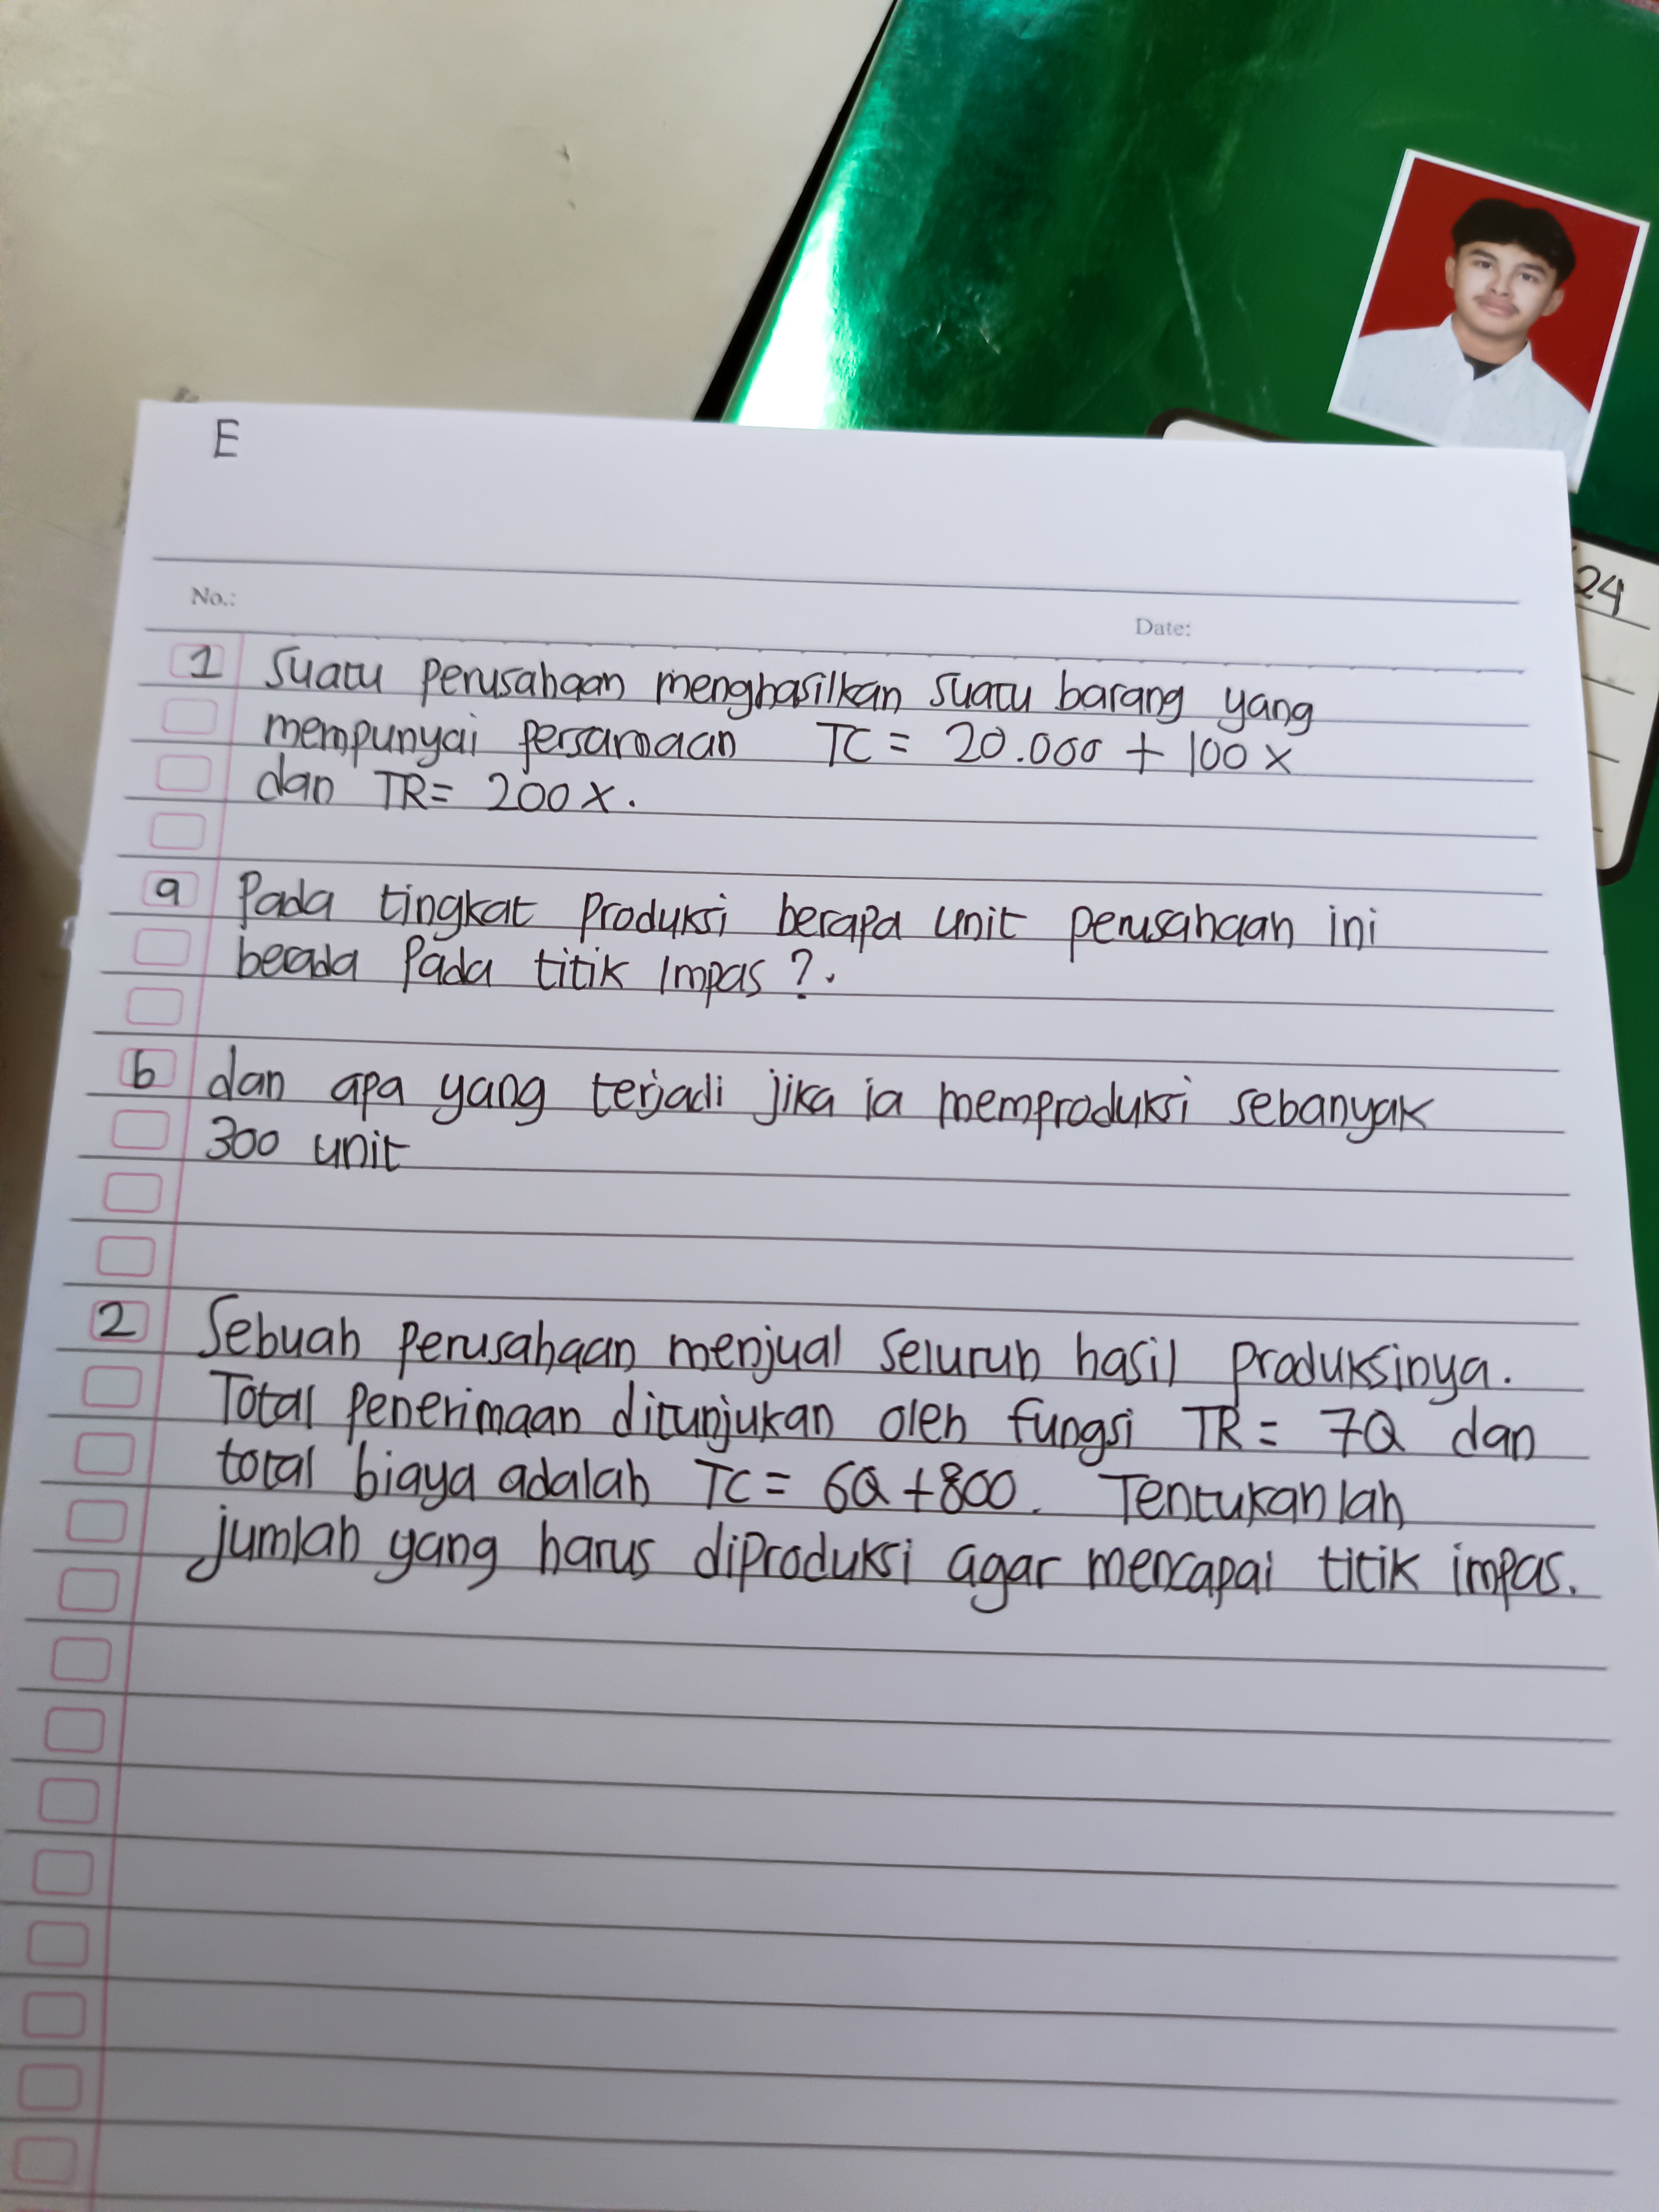 E
No.:
Date:
24
1 Suatu perusahaan menghasilkan suatu barang yang
mempunyai persamaan TC = 20.000 + 100 x
dan TR = 200 x.
a Pada tingkat produksi berapa unit perusahaan ini
berada pada titik impas ?.
b dan apa yang terjadi jika ia memproduksi sebanyak
300 unit
2 Sebuah perusahaan menjual seluruh hasil produksinya.
Total penerimaan ditunjukan oleh fungsi TR = 7Q dan
total biaya adalah TC = 6Q + 800. Tentukanlah
jumlah yang harus diproduksi agar mencapai titik impas.